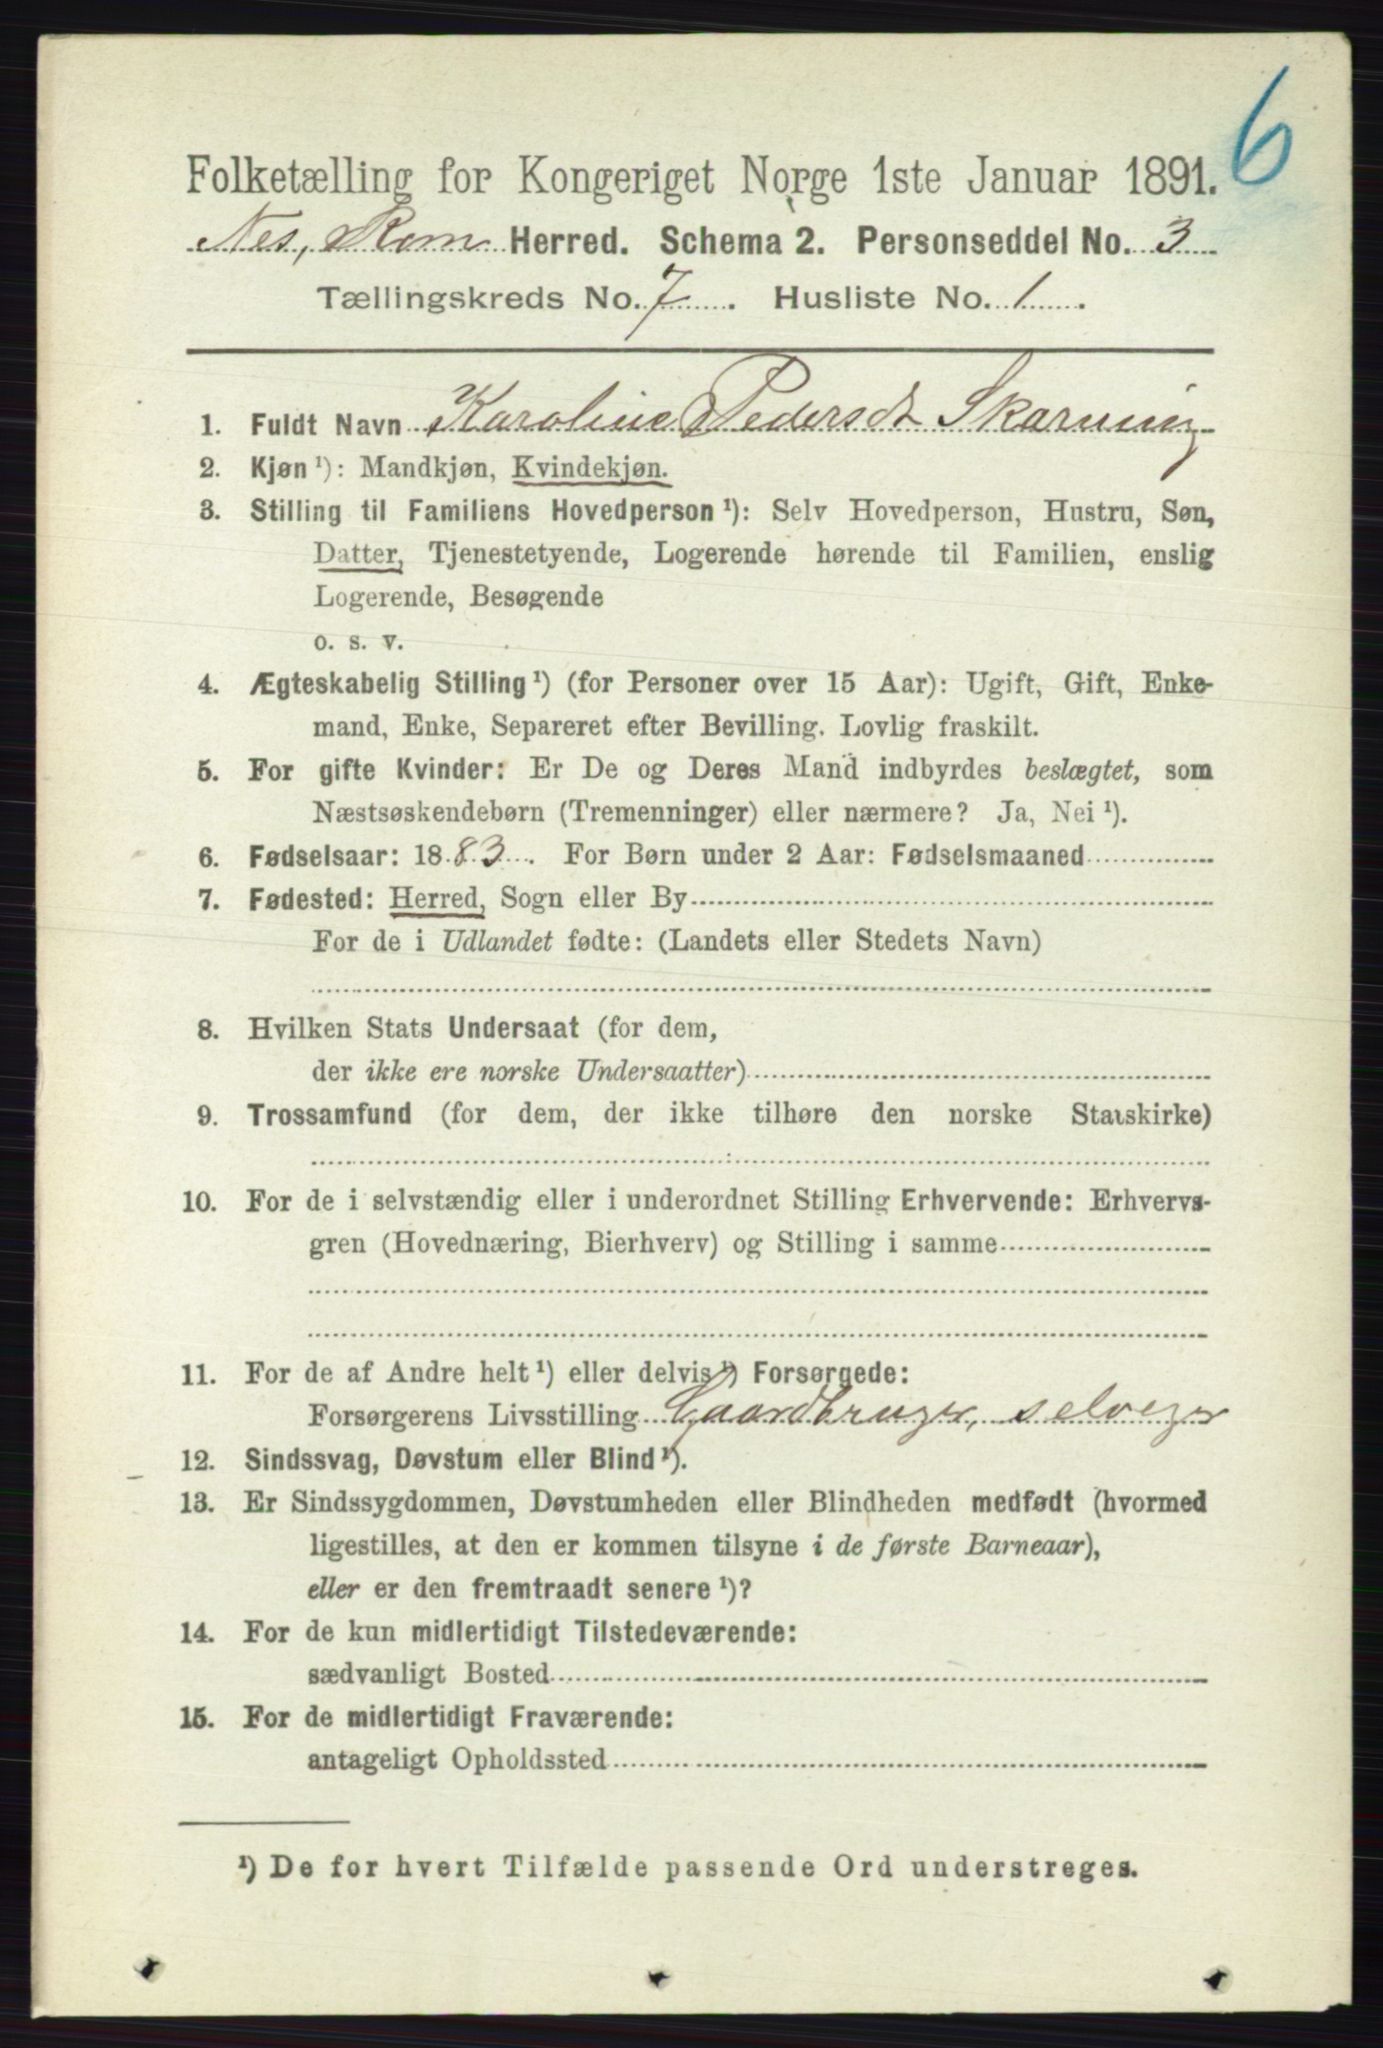 6
Folketælling for Kongeriget Norge 1ste Januar 1891.
Nes, Rom Herred. Schema 2. Personseddel No. 3
Tællingskreds No. 7. Husliste No. 1.
1. Fuldt Navn Karoline Pedersdt Skarning
2. Kjøn ¹): Mandkjøn, Kvindekjøn.
3. Stilling til Familiens Hovedperson ¹): Selv Hovedperson, Hustru, Søn,
Datter, Tjenestetyende, Logerende hørende til Familien, enslig
Logerende, Besøgende
o. s. v.
4. Ægteskabelig Stilling ¹) (for Personer over 15 Aar): Ugift, Gift, Enke-
mand, Enke, Separeret efter Bevilling. Lovlig fraskilt.
5. For gifte Kvinder: Er De og Deres Mand indbyrdes beslægtet, som
Næstsøskendebørn (Tremenninger) eller nærmere? Ja, Nei ¹).
6. Fødselsaar: 1883. For Børn under 2 Aar: Fødselsmaaned
7. Fødested: Herred, Sogn eller By
For de i Udlandet fødte: (Landets eller Stedets Navn)
8. Hvilken Stats Undersaat (for dem,
der ikke ere norske Undersaatter)
9. Trossamfund (for dem, der ikke tilhøre den norske Statskirke)
10. For de i selvstændig eller i underordnet Stilling Erhvervende: Erhvervs-
gren (Hovednæring, Bierhverv) og Stilling i samme
11. For de af Andre helt ¹) eller delvis ¹) Forsørgede:
Forsørgerens Livsstilling Gaardbruger, selveger
12. Sindssvag, Døvstum eller Blind ¹).
13. Er Sindssygdommen, Døvstumheden eller Blindheden medfødt (hvormed
ligestilles, at den er kommen tilsyne i de første Barneaar),
eller er den fremtraadt senere ¹)?
14. For de kun midlertidigt Tilstedeværende:
sædvanligt Bosted
15. For de midlertidigt Fraværende:
antageligt Opholdssted
¹) De for hvert Tilfælde passende Ord understreges.